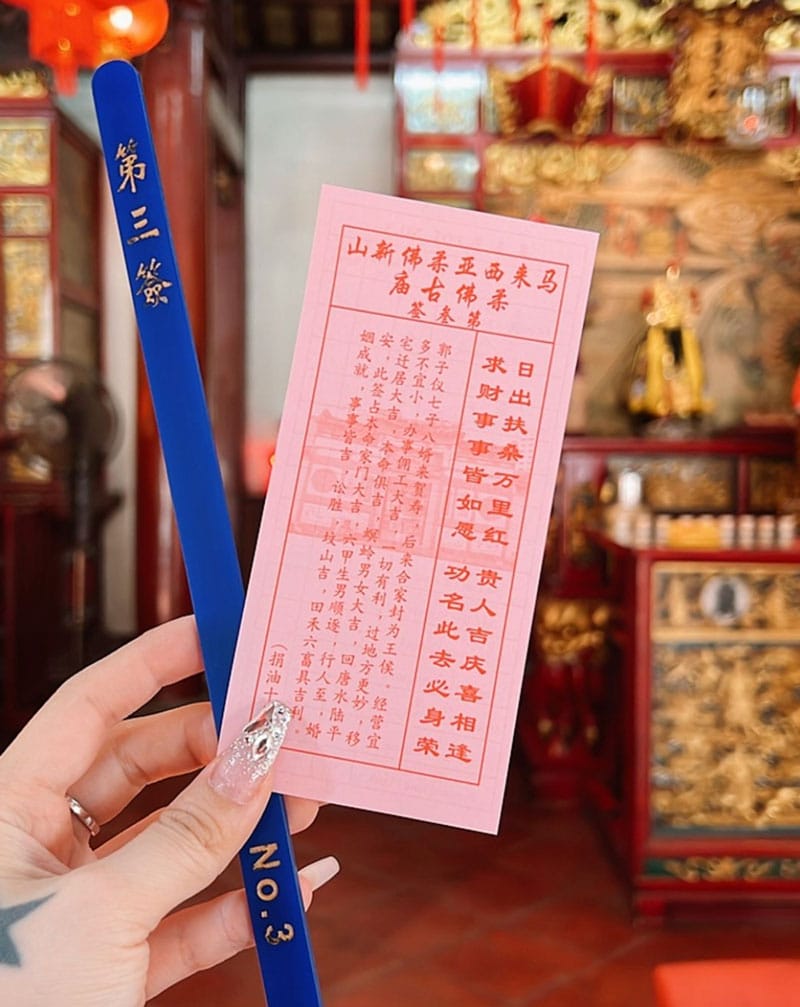 第三簽
No.3
马来西亚柔佛新山
柔佛古庙
第叁签
日出扶桑万里红 贵人吉庆喜相逢
求财事事皆如愿 功名此去必身荣
郭子仪七子八婿来贺寿，后来合家封为王侯。经营宜
多不宜小，办事佣工大吉，一切有利，过地方更妙，移
宅迁居大吉，本命俱吉。螟蛉男女大吉，回唐水陆平
安，此签占本命家门大吉，六甲生男顺遂，行人至，婚
姻成就，事事皆吉，讼胜，坟山吉，田禾六畜具吉利。
（捐油十